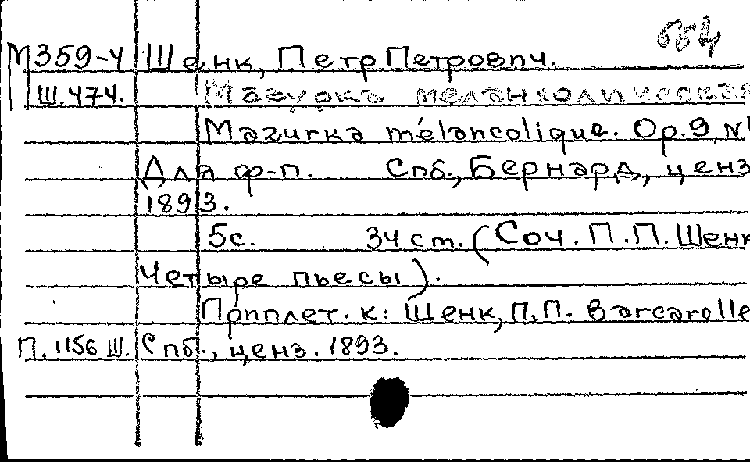 664
М359-4 Шенк, Петр Петрович.
Ш.474. Мазурка меланхолическая
Mazurka mélancolique. Op.9, N1
Для ф-п. Спб., Бернард, ценз
1893.
5с. 34 cm. (Соч. П.П. Шенк
Четыре пьесы).
Припплет. к: Шенк, П.П. Barcarolle
П.1156 Ш. Спб., ценз. 1893.